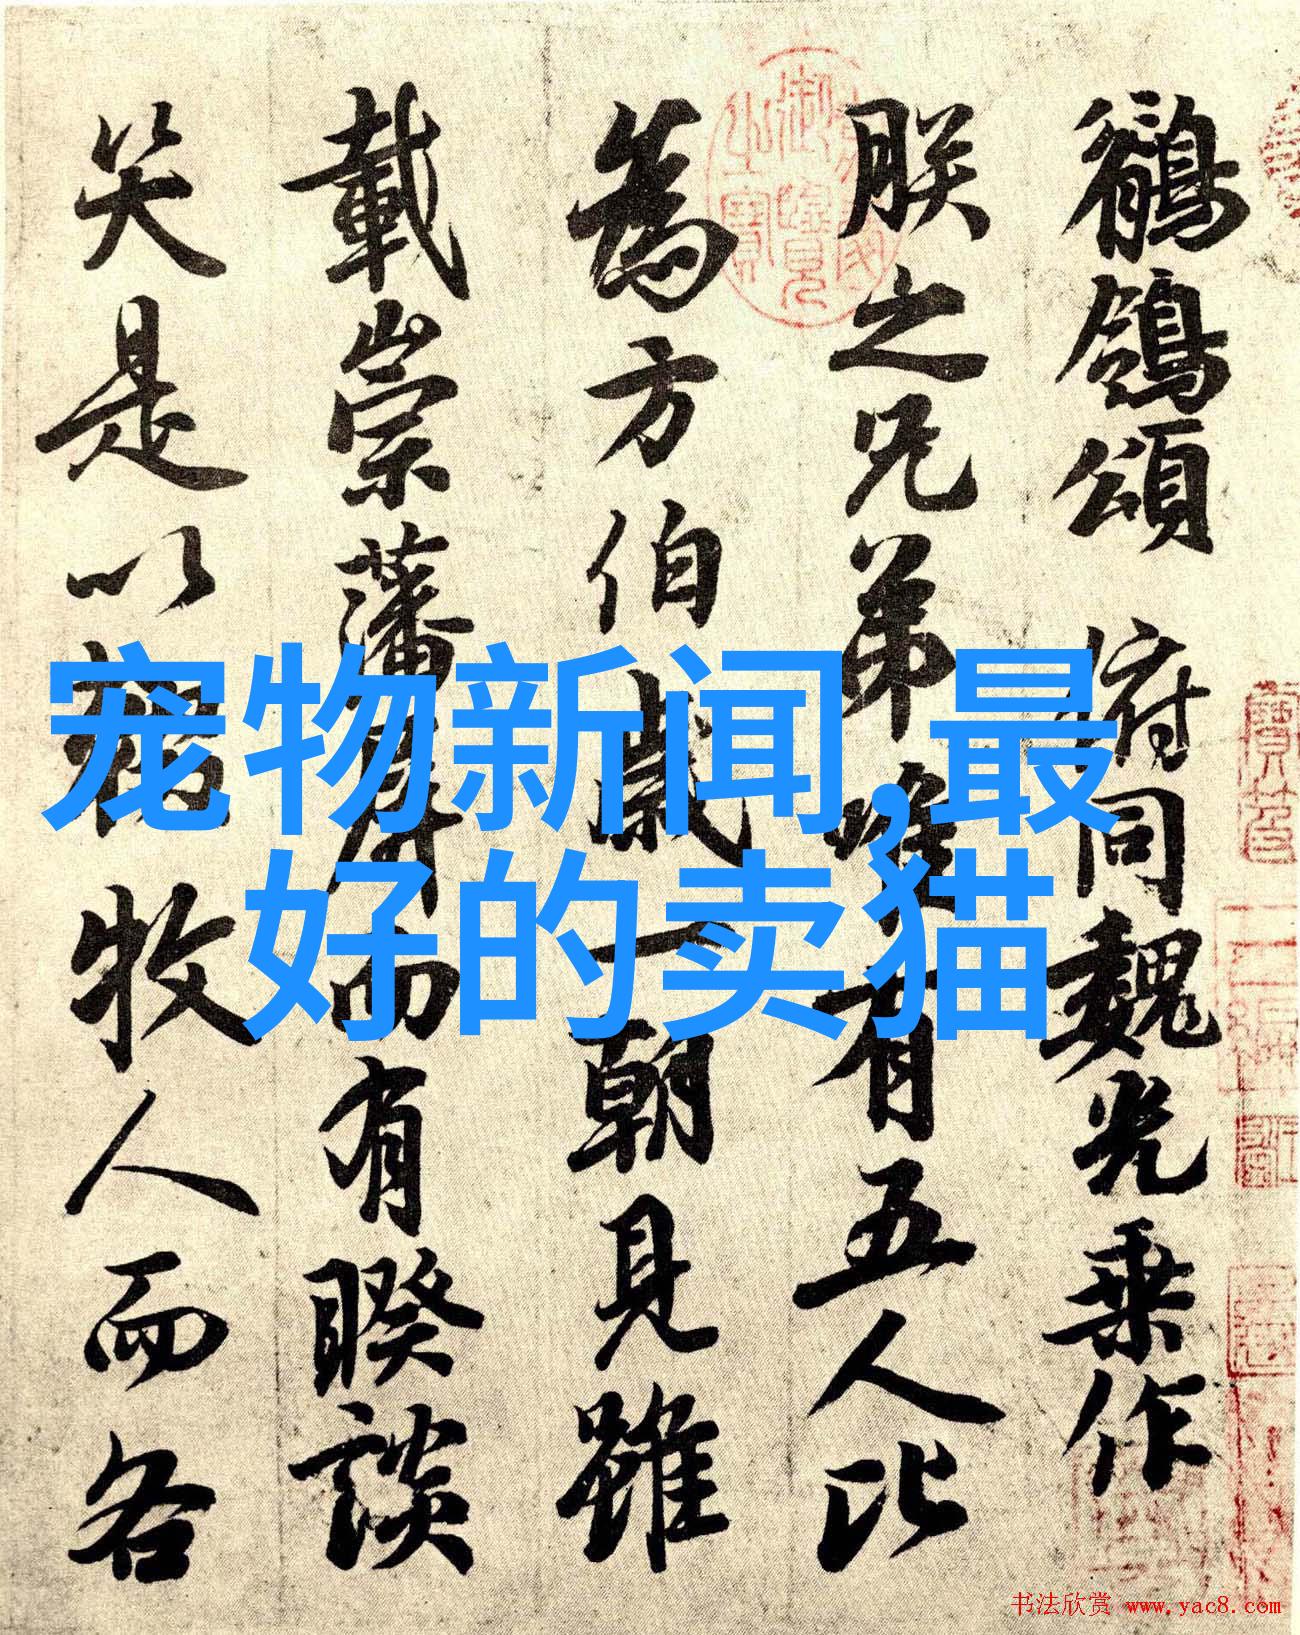 鶺鴒頌 俯同魏光乘作
朕之兄弟唯有五人比
為方伯歲一朝見雖
載崇藩屏而有睽談
笑是以輟牧人而各
宠物新闻,最
好的卖猫
书法欣赏 www.yac8.com